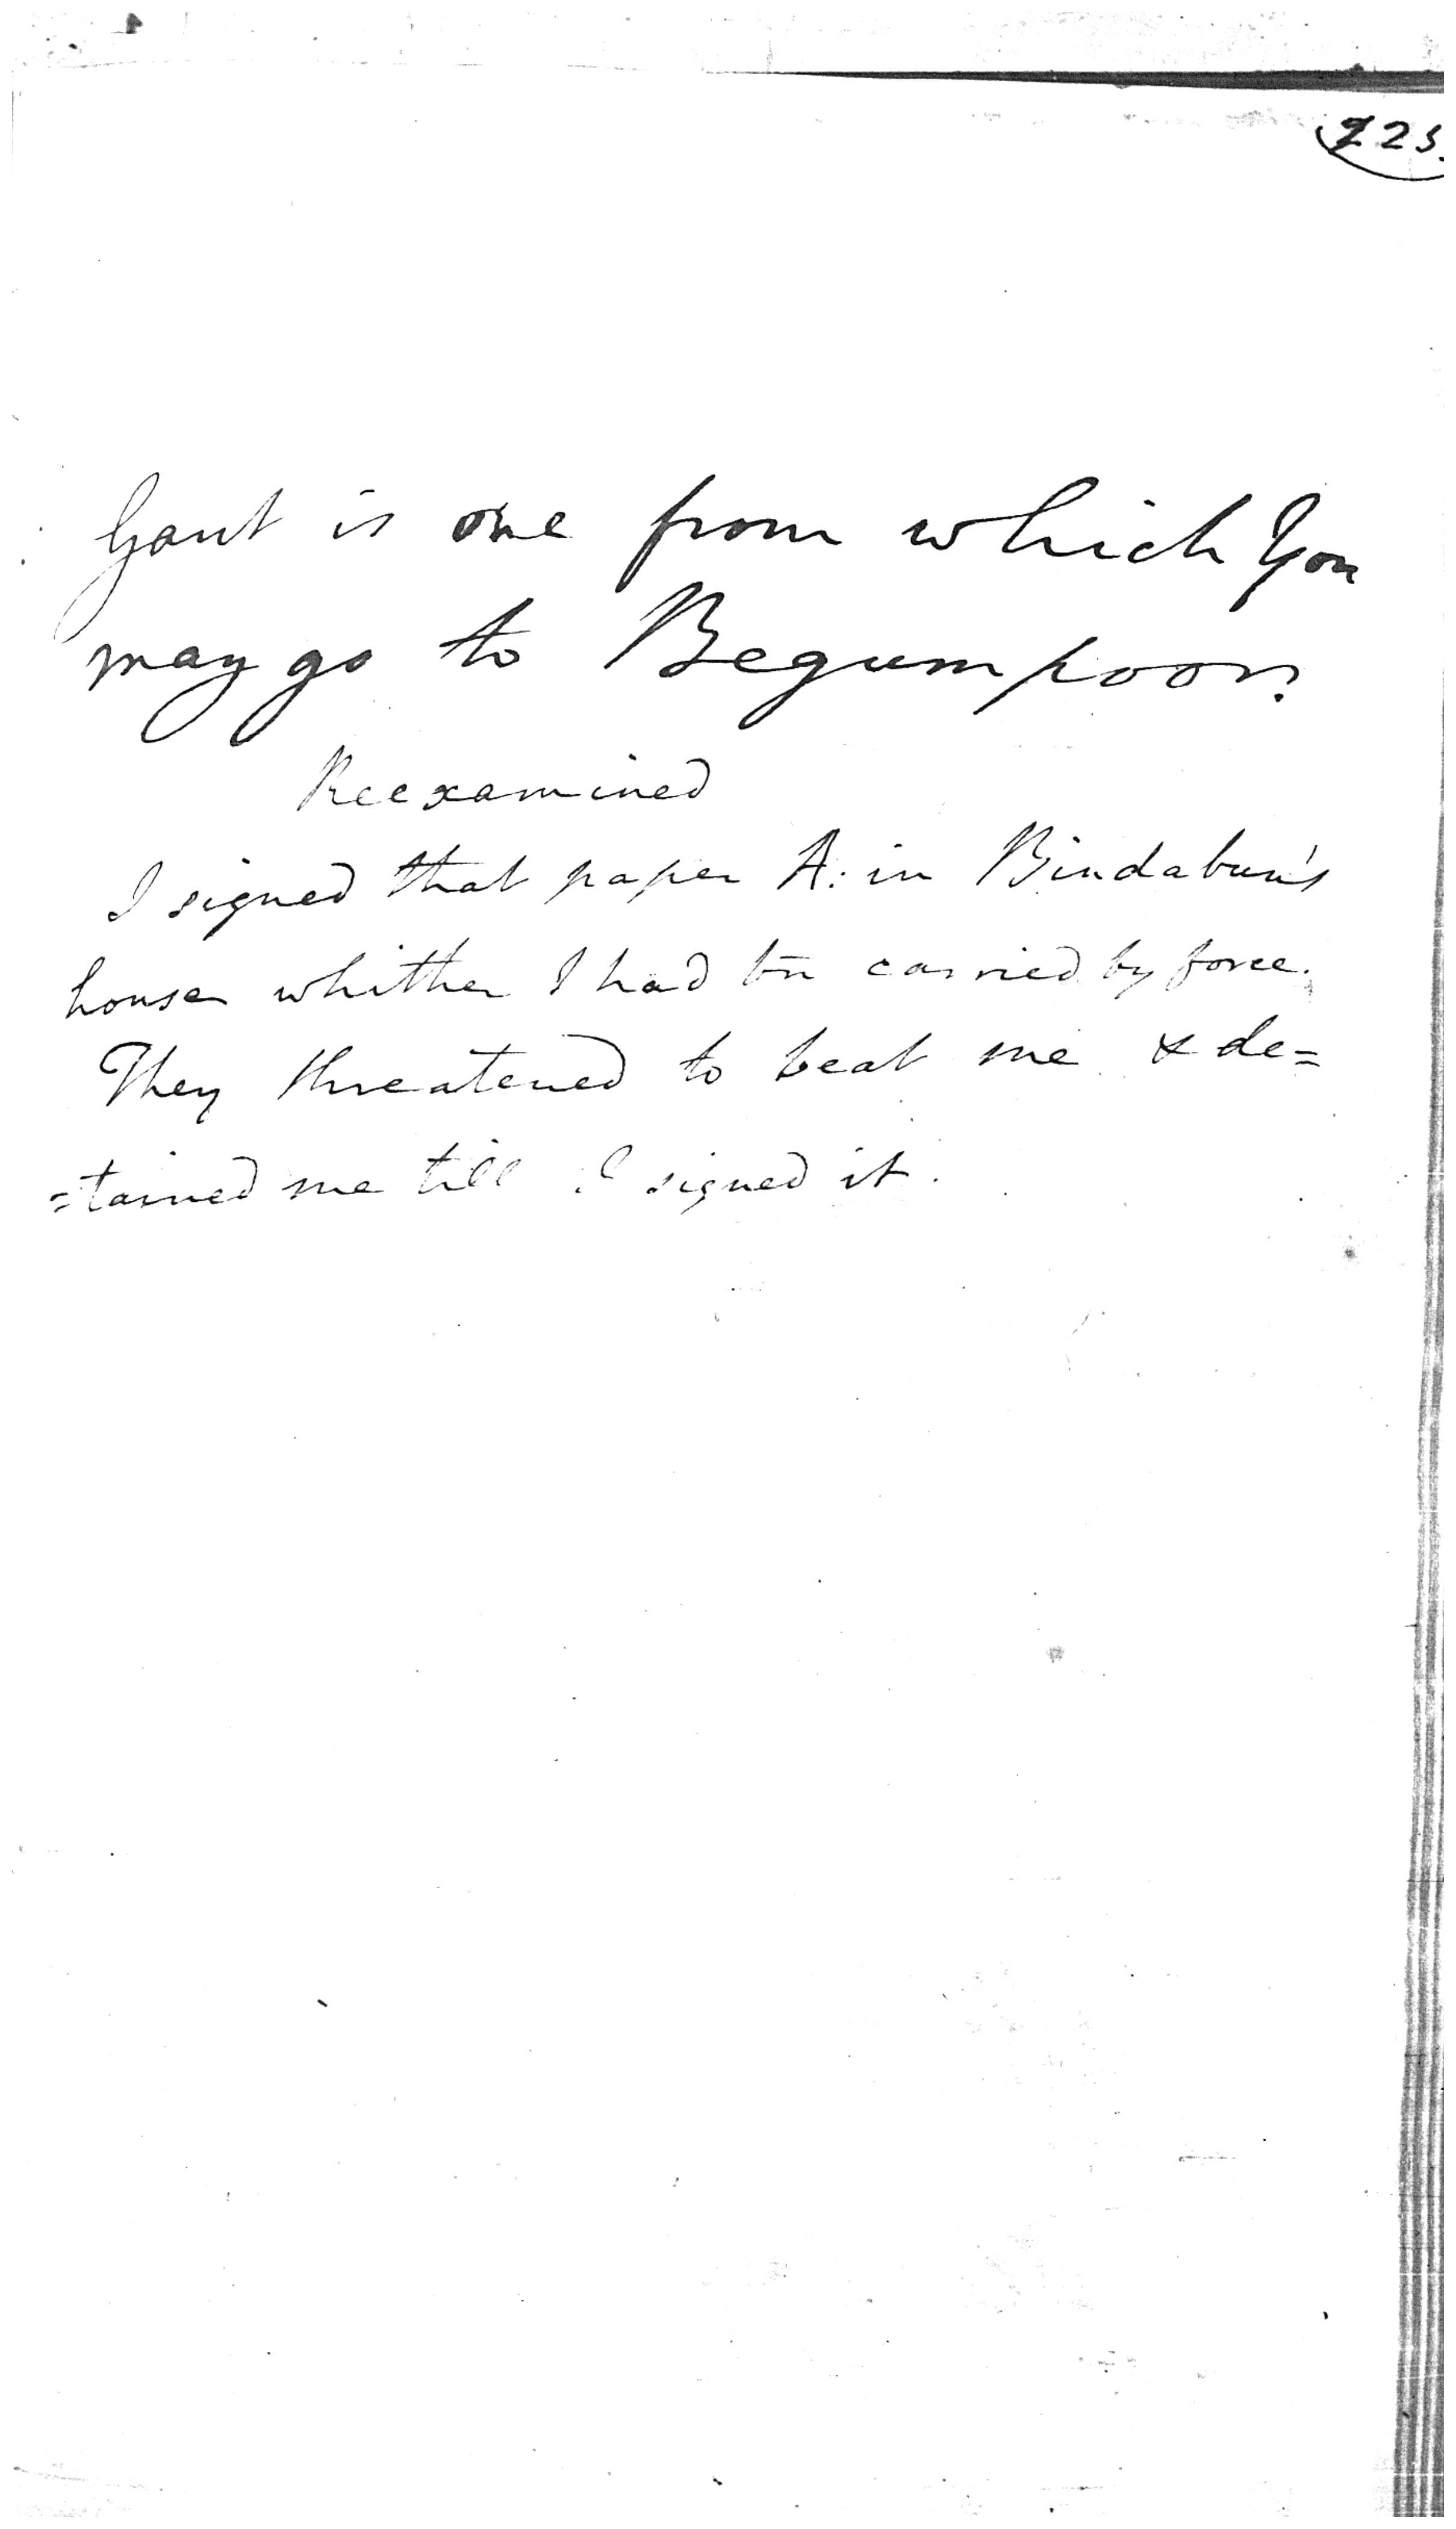 225.
Gaut is one from which You
may go to Begumpoor.
Reexamined
I signed that paper A: in Bindabun's
house whither I had bn carried by force.
They threatened to beat me & de=
=tained me till I signed it.